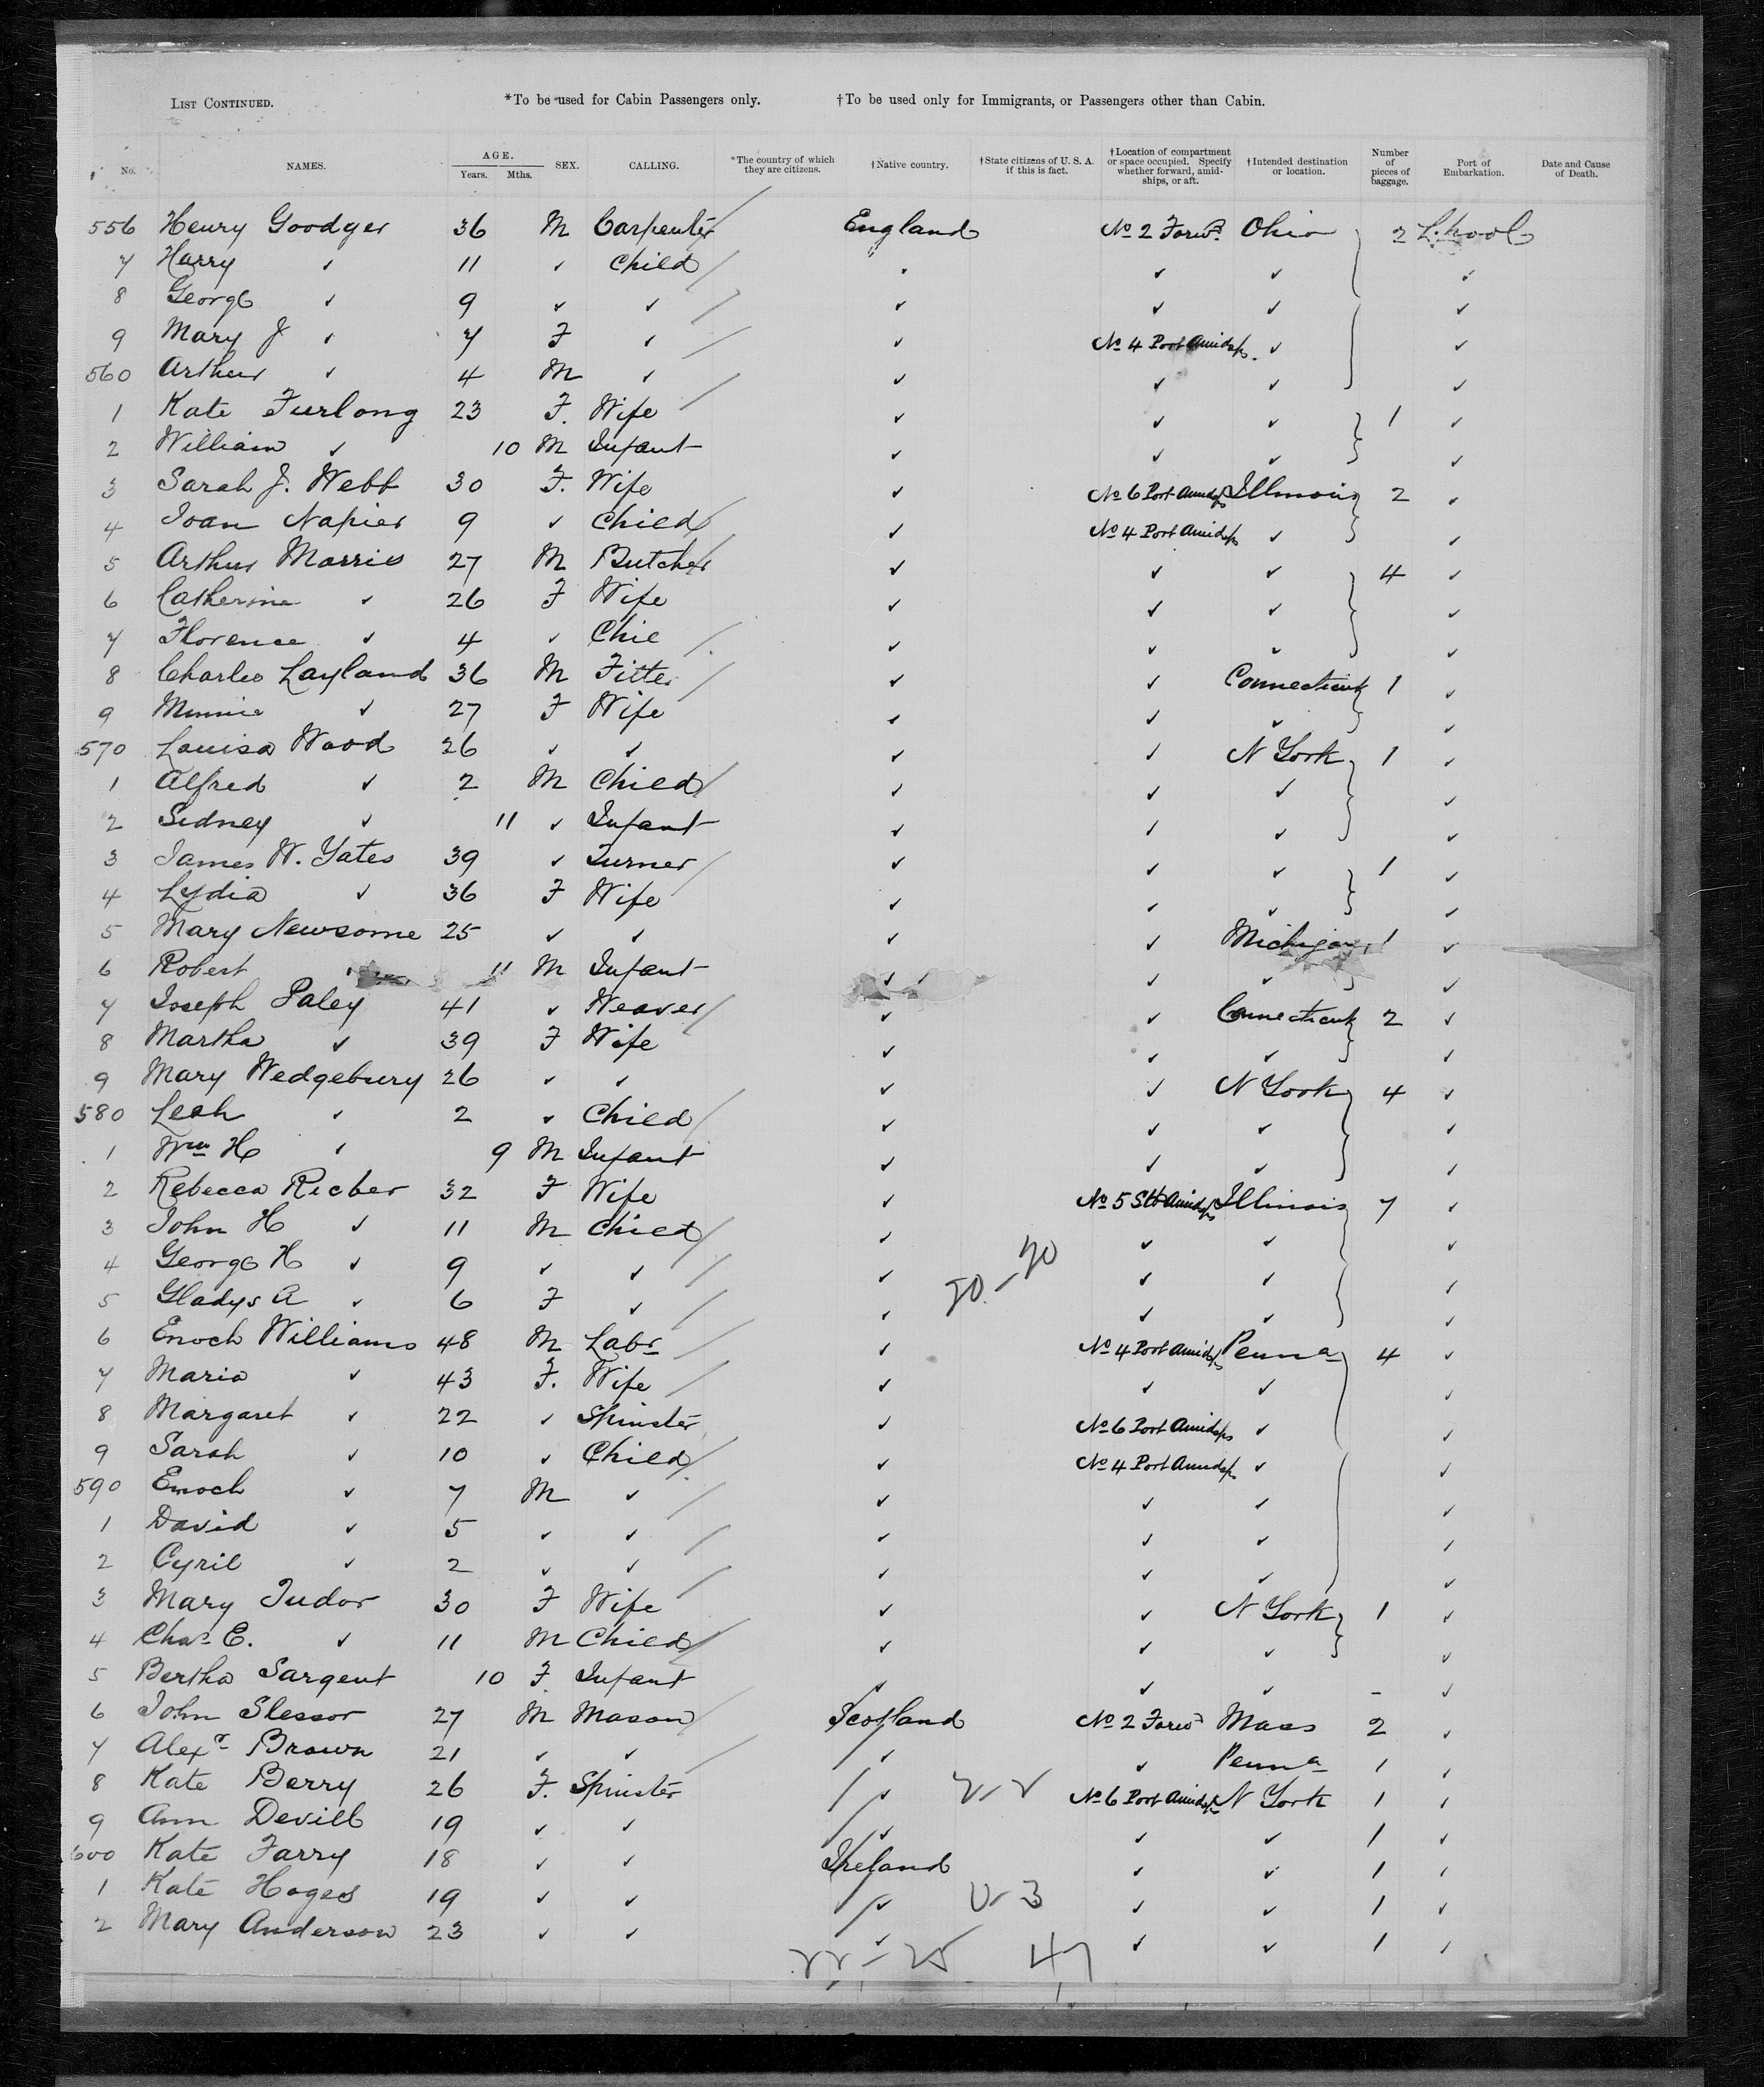 LIST CONTINUED. *To be used for Cabin Passengers only. †To be used only for Immigrants, or Passengers other than Cabin.
No. NAMES. AGE. Years. Mths. SEX. CALLING. *The country of which they are citizens. †Native country. †State citizens of U. S. A. if this is fact. †Location of compartment or space occupied. Specify whether forward, amidships, or aft. †Intended destination or location. Number of pieces of baggage. Port of Embarkation. Date and Cause of Death.
556 Henry Goodger 36 M Carpenter England No 2 Forwd. Ohio 2 L.pool
7 Harry ✓ 11 ✓ Child ✓ ✓ ✓ ✓
8 George ✓ 9 ✓ ✓ ✓ ✓ ✓ ✓
9 Mary J ✓ 7 F ✓ ✓ No 4 Port Amidsps. ✓ ✓
560 Arthur ✓ 4 M ✓ ✓ ✓ ✓ ✓
1 Kate Furlong 23 F. Wife ✓ ✓ ✓ 1 ✓
2 William ✓ 10 M Infant ✓ ✓ ✓ ✓
3 Sarah J. Webb 30 F. Wife ✓ No 6 Port Amidsps Illinois 2 ✓
4 Joan Napier 9 ✓ Child ✓ No 4 Port Amidsps ✓ ✓
5 Arthur Morris 27 M Butcher ✓ ✓ ✓ 4 ✓
6 Catherine ✓ 26 F Wife ✓ ✓ ✓ ✓
7 Florence ✓ 4 ✓ Chil ✓ ✓ ✓ ✓
8 Charles Layland 36 M Fitter ✓ ✓ Connecticut 1 ✓
9 Minnie ✓ 27 F Wife ✓ ✓ ✓ ✓
570 Louisa Wood 26 ✓ ✓ ✓ ✓ N York 1 ✓
1 Alfred ✓ 2 M Child ✓ ✓ ✓ ✓
2 Sidney ✓ 11 ✓ Infant ✓ ✓ ✓ ✓
3 James W. Yates 39 ✓ Turner ✓ ✓ ✓ 1 ✓
4 Lydia ✓ 36 F Wife ✓ ✓ ✓ ✓
5 Mary Newsome 25 ✓ ✓ ✓ ✓ Michigan 1 ✓
6 Robert ✓ 11 M Infant ✓ ✓ ✓ ✓
7 Joseph Paley 41 ✓ Weaver ✓ ✓ Connecticut 2 ✓
8 Martha ✓ 39 F Wife ✓ ✓ ✓ ✓
9 Mary Wedgebury 26 ✓ ✓ ✓ ✓ N York 4 ✓
580 Leah ✓ 2 ✓ Child ✓ ✓ ✓ ✓
1 Wm H ✓ 9 M Infant ✓ ✓ ✓ ✓
2 Rebecca Ricber 32 F Wife ✓ No 5 Stb Amidsps Illinois 7 ✓
3 John H ✓ 11 M Child ✓ ✓ ✓ ✓
4 George H ✓ 9 ✓ ✓ ✓ ✓ ✓ ✓
5 Gladys A ✓ 6 F ✓ ✓ ✓ ✓ ✓
6 Enoch Williams 48 M Labr ✓ No 4 Port Amidsps Penna 4 ✓
7 Maria ✓ 43 F. Wife ✓ ✓ ✓ ✓
8 Margaret ✓ 22 ✓ Spinster ✓ No 6 Port Amidsps ✓ ✓
9 Sarah ✓ 10 ✓ Child ✓ No 4 Port Amidsps ✓ ✓
590 Enoch ✓ 7 M ✓ ✓ ✓ ✓ ✓
1 David ✓ 5 ✓ ✓ ✓ ✓ ✓ ✓
2 Cyril ✓ 2 ✓ ✓ ✓ ✓ ✓ ✓
3 Mary Tudor 30 F Wife ✓ ✓ N York 1 ✓
4 Chas E. ✓ 11 M Child ✓ ✓ ✓ ✓
5 Bertha Sargent 10 F. Infant ✓ ✓ ✓ - ✓
6 John Slessor 27 M Mason Scotland No 2 Forwd Mass 2 ✓
7 Alexr Brown 21 ✓ ✓ ✓ ✓ Penna 1 ✓
8 Kate Berry 26 F. Spinster ✓ No 6 Port Amidsps N York 1 ✓
9 Ann Devill 19 ✓ ✓ ✓ ✓ ✓ 1 ✓
600 Kate Farry 18 ✓ ✓ Ireland ✓ ✓ 1 ✓
1 Kate Hages 19 ✓ ✓ ✓ ✓ ✓ 1 ✓
2 Mary Anderson 23 ✓ ✓ ✓ ✓ ✓ 1 ✓
47